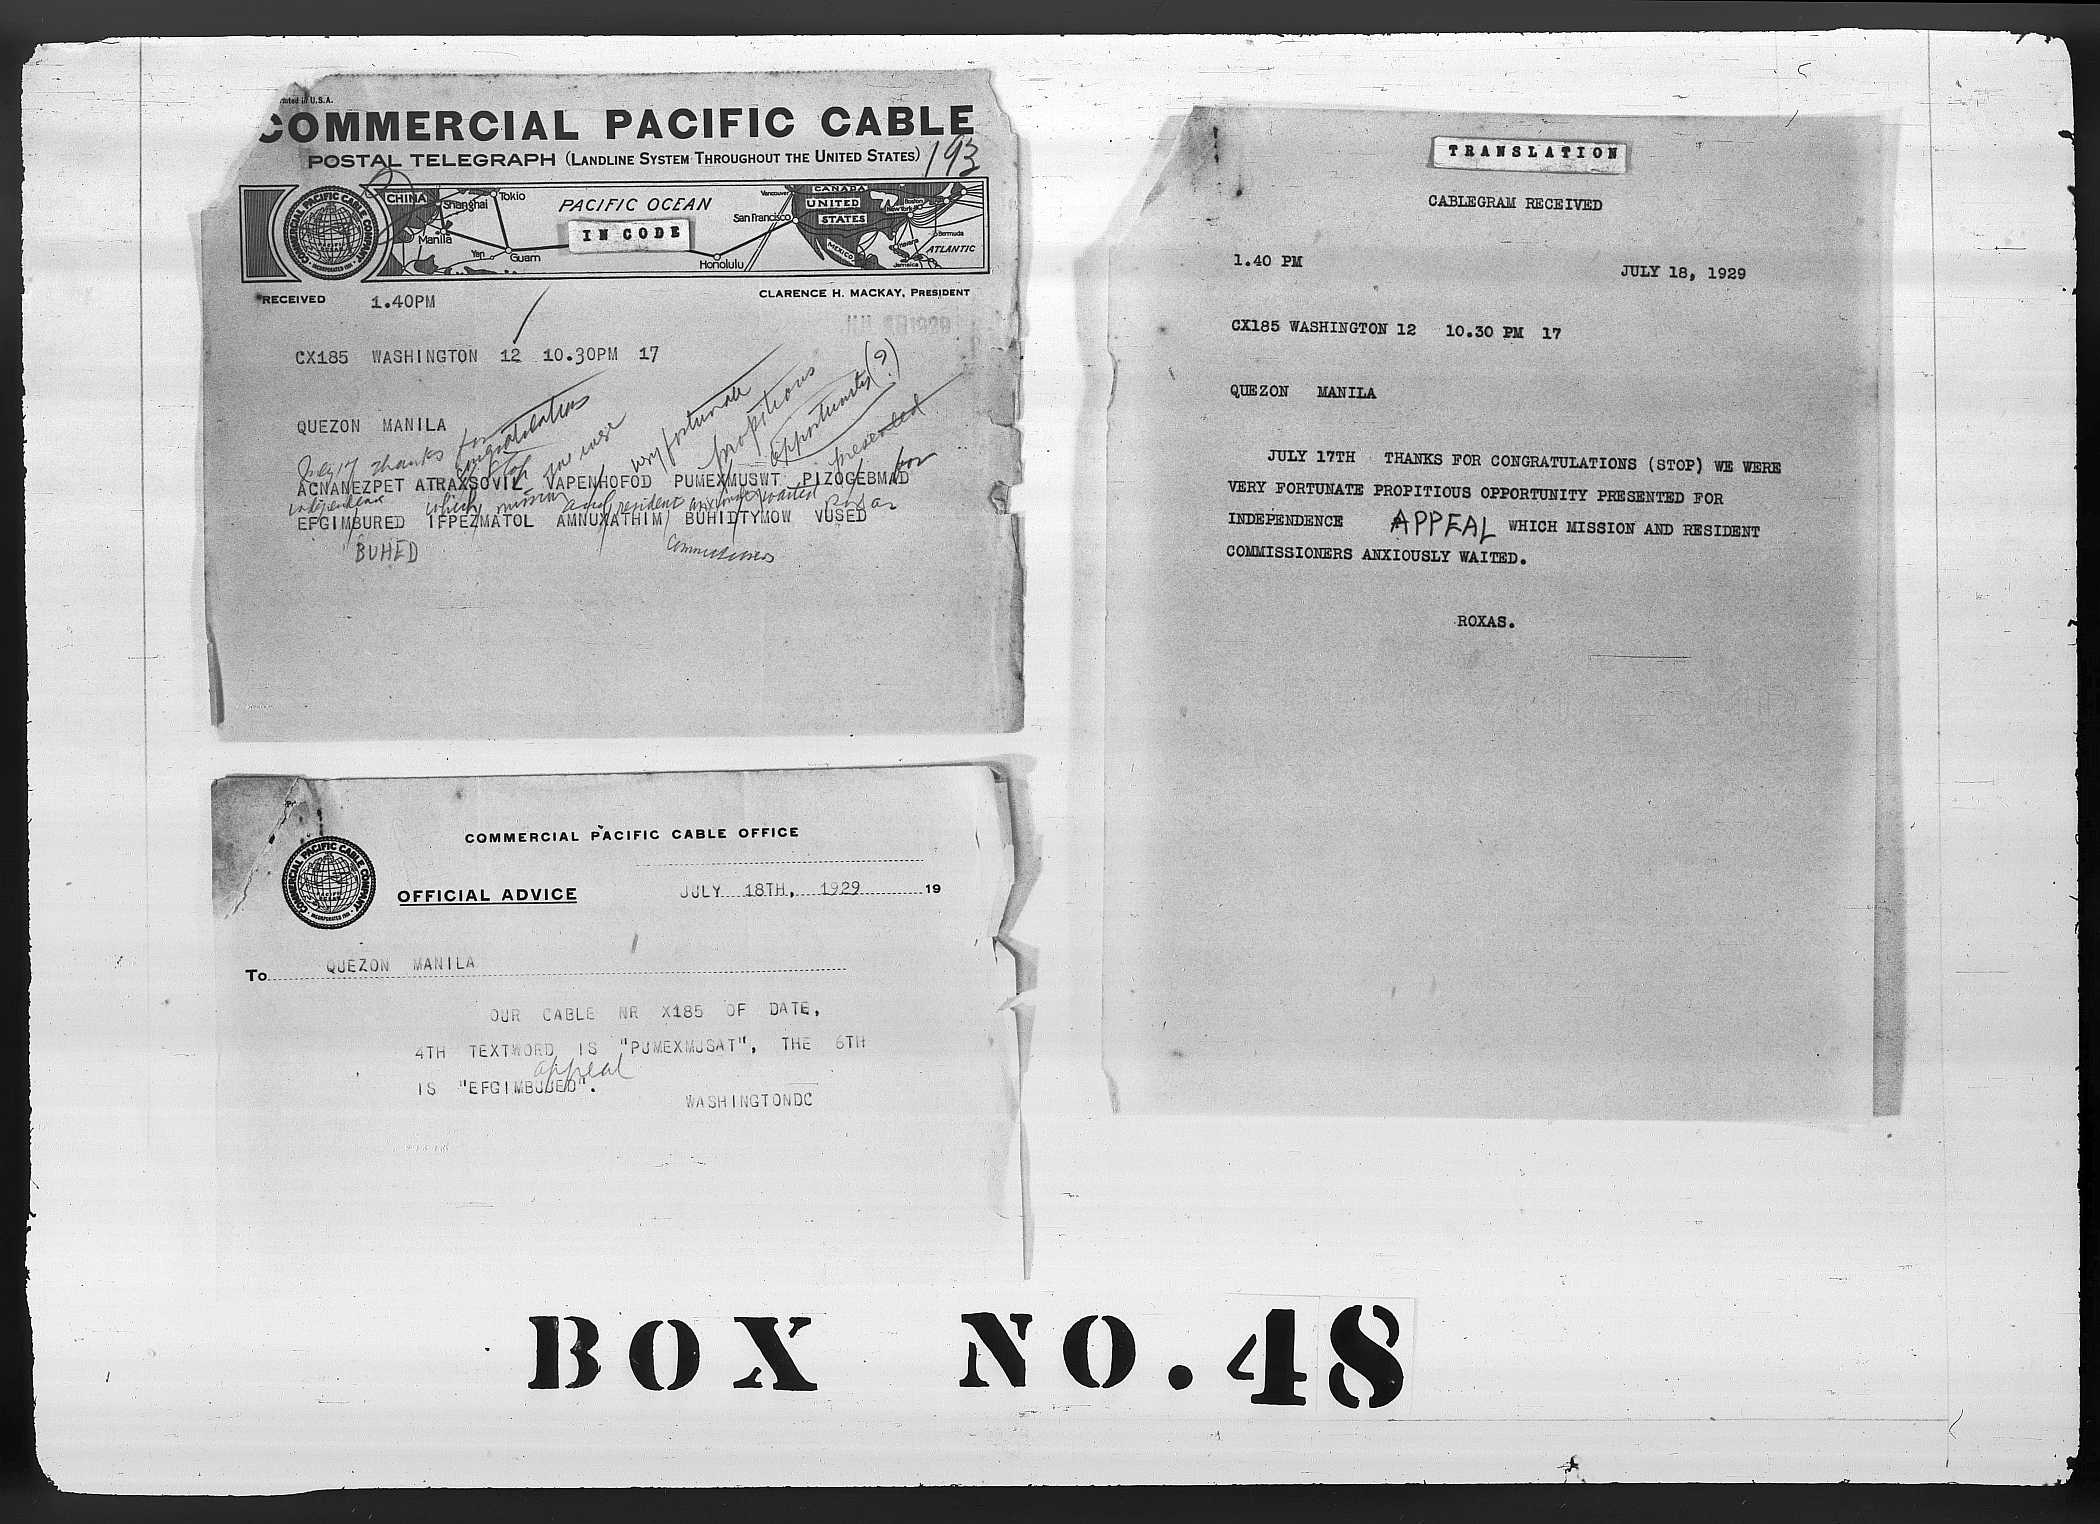 Printed in U.S.A.
COMMERCIAL PACIFIC CABLE
POSTAL TELEGRAPH (LANDLINE SYSTEM THROUGHOUT THE UNITED STATES) 193
COMMERCIAL PACIFIC CABLE COMPANY
INCORPORATED
CHINA
Shanghai
Tokio
Manila
Yap
Guam
PACIFIC OCEAN
IN CODE
Honolulu
San Francisco
Vancouver
CANADA
UNITED
STATES
MEXICO
Boston
New York
Bermuda
Havana
Jamaica
ATLANTIC
RECEIVED 1.40PM
CLARENCE H. MACKAY, PRESIDENT
CX185 WASHINGTON 12 10.30PM 17
QUEZON MANILA
July 17 thanks for congratulations stop we were very fortunate propitious opportunity (?) presented for
ACNANEZPET ATRAXSOVIL VAPENHOFOD PUMEXMUSWT PIZOGEBMAD
independence which mission and resident anxiously waited Roxas
EFGIMBURED IFPEZMATOL AMNUXATHIM BUHIDTYMOW VUSED
BUHED
commissioners
COMMERCIAL PACIFIC CABLE OFFICE
COMMERCIAL PACIFIC CABLE COMPANY
INCORPORATED
OFFICIAL ADVICE JULY 18TH, 1929 19
To QUEZON MANILA
OUR CABLE NR X185 OF DATE,
4TH TEXTWORD IS "PUMEXMUSAT", THE 6TH
appeal
IS "EFGIMBUJED".
WASHINGTONDC
TRANSLATION
CABLEGRAM RECEIVED
1.40 PM
JULY 18, 1929
CX185 WASHINGTON 12 10.30 PM 17
QUEZON MANILA
JULY 17TH THANKS FOR CONGRATULATIONS (STOP) WE WERE
VERY FORTUNATE PROPITIOUS OPPORTUNITY PRESENTED FOR
INDEPENDENCE APPEAL WHICH MISSION AND RESIDENT
COMMISSIONERS ANXIOUSLY WAITED.
ROXAS.
BOX NO. 48